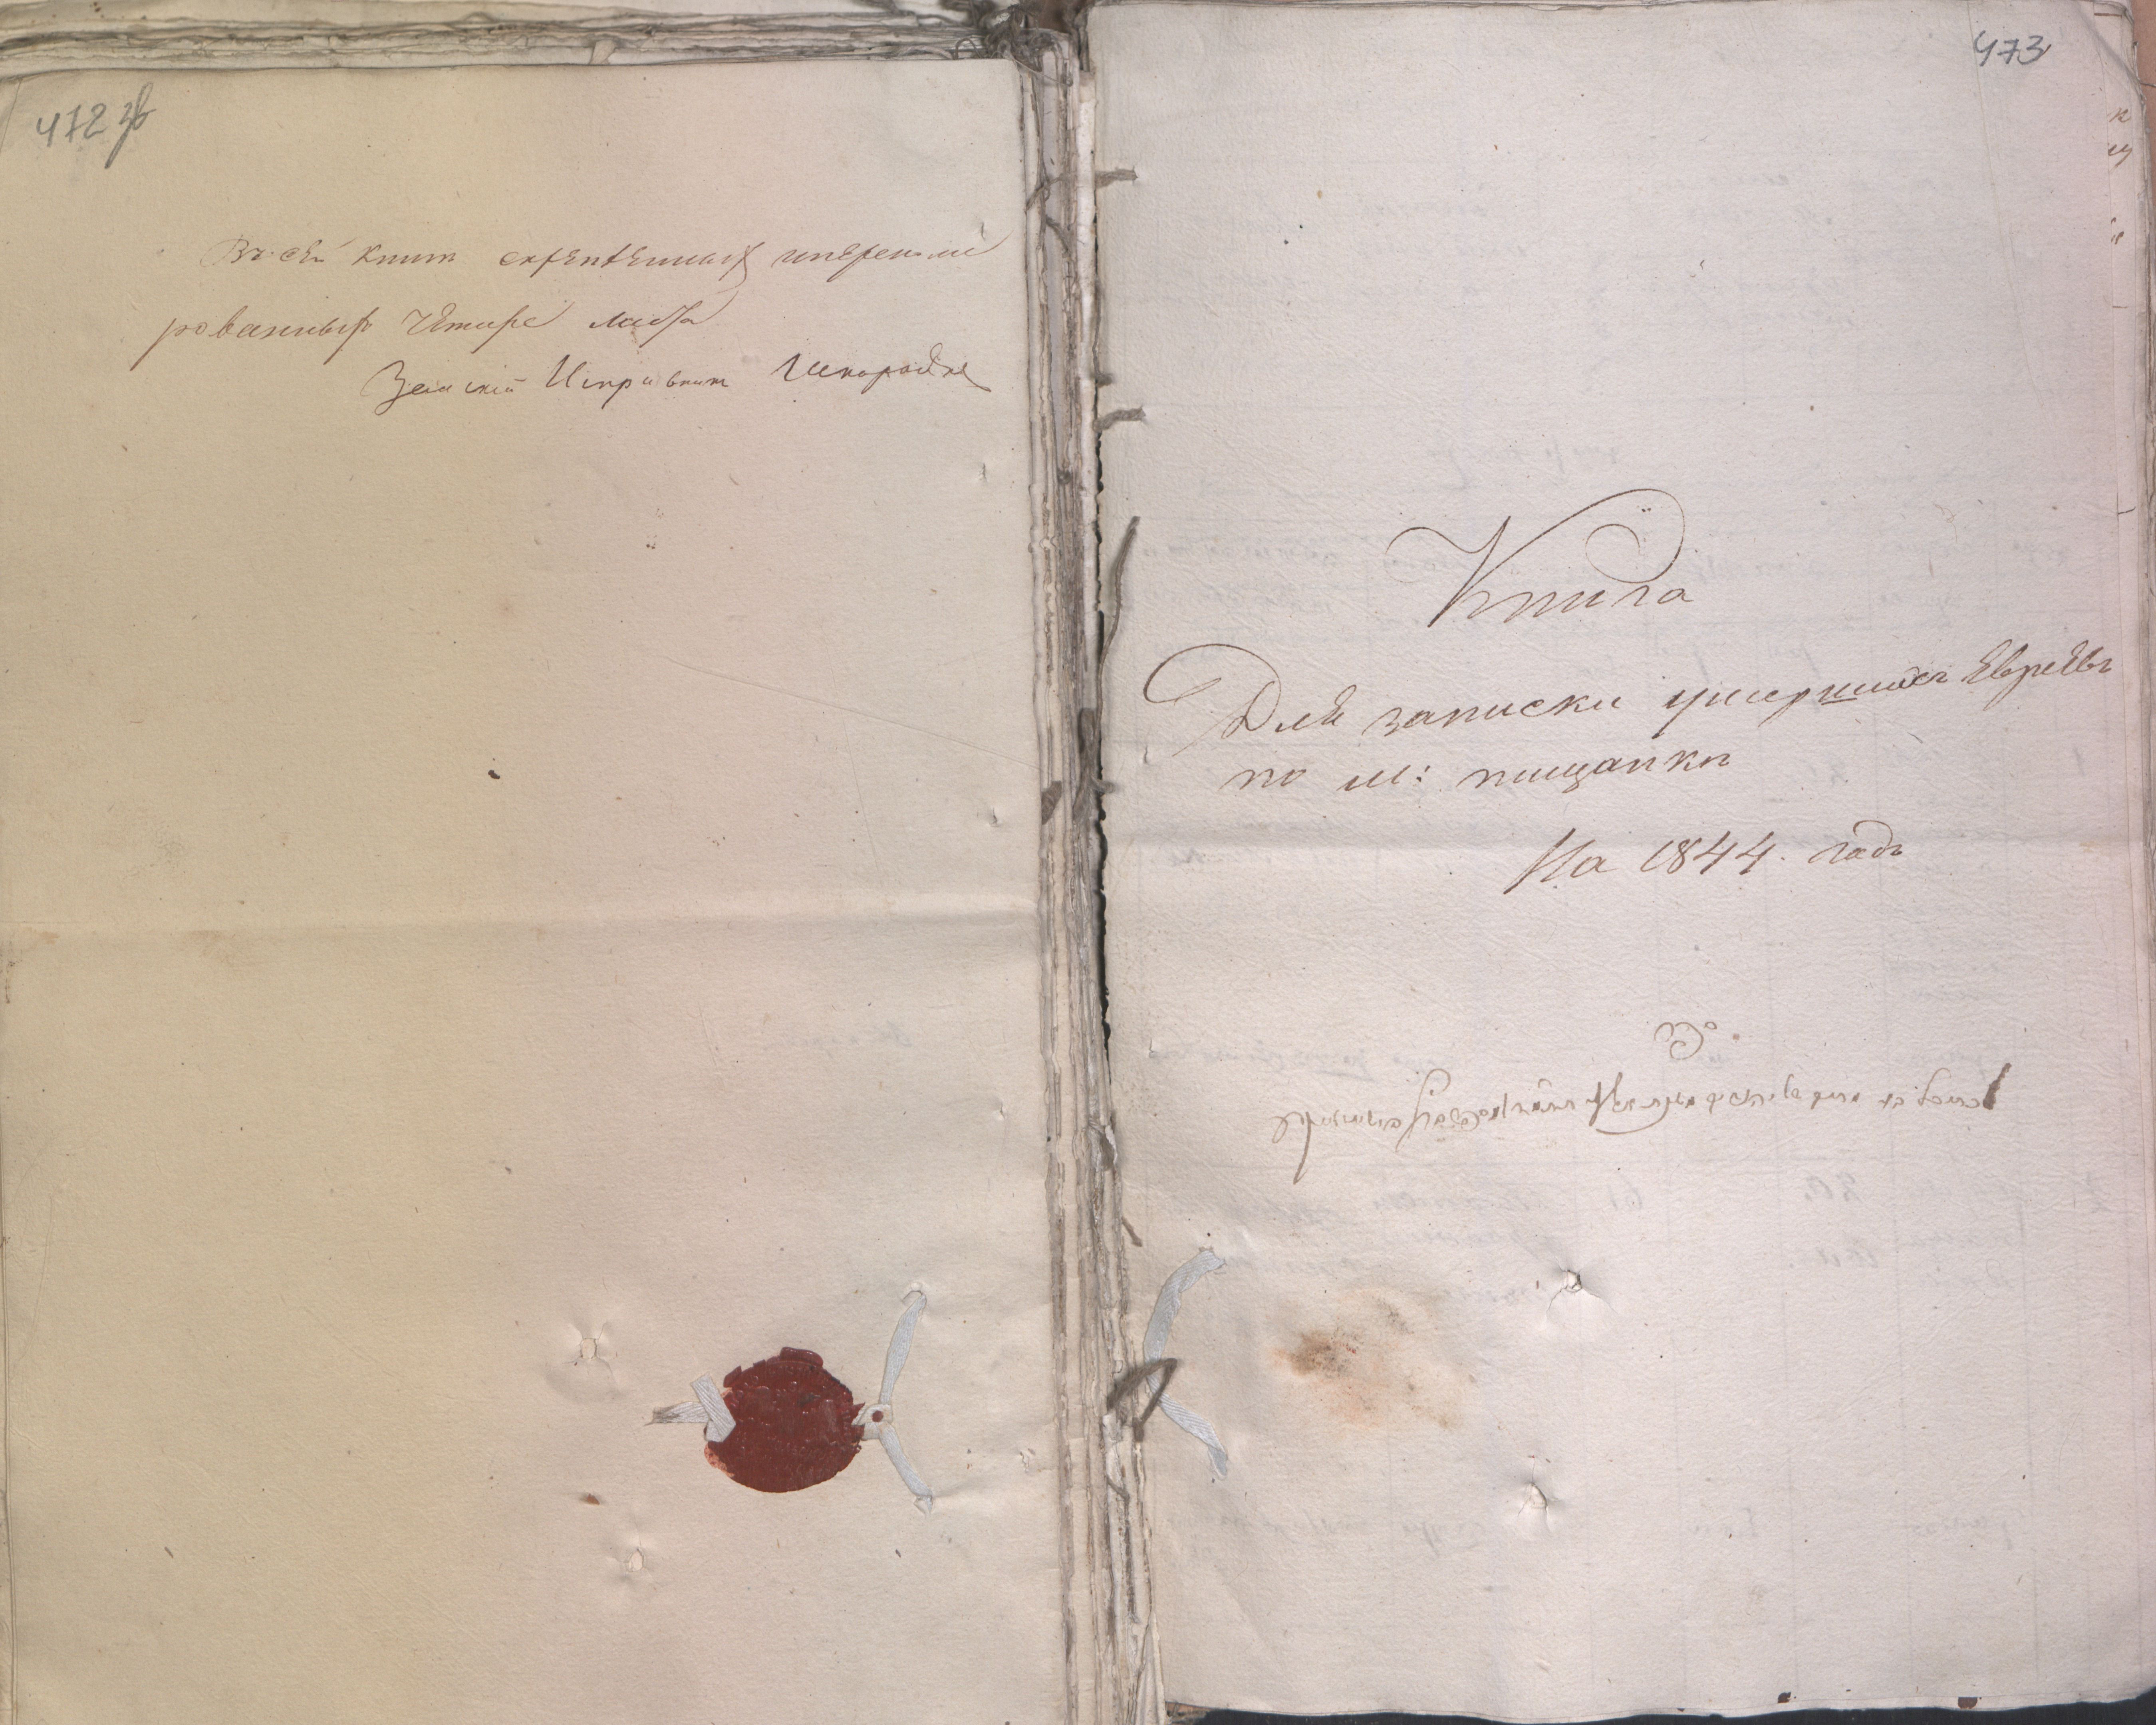 472 зв
Въ сей книги скрепленныхъ и перенуме
рованныхъ четыре листа
Земскій Исправникъ
473
Книга
Для записки умершихъ Евреевъ
по м: пищанки
На 1844. годъ